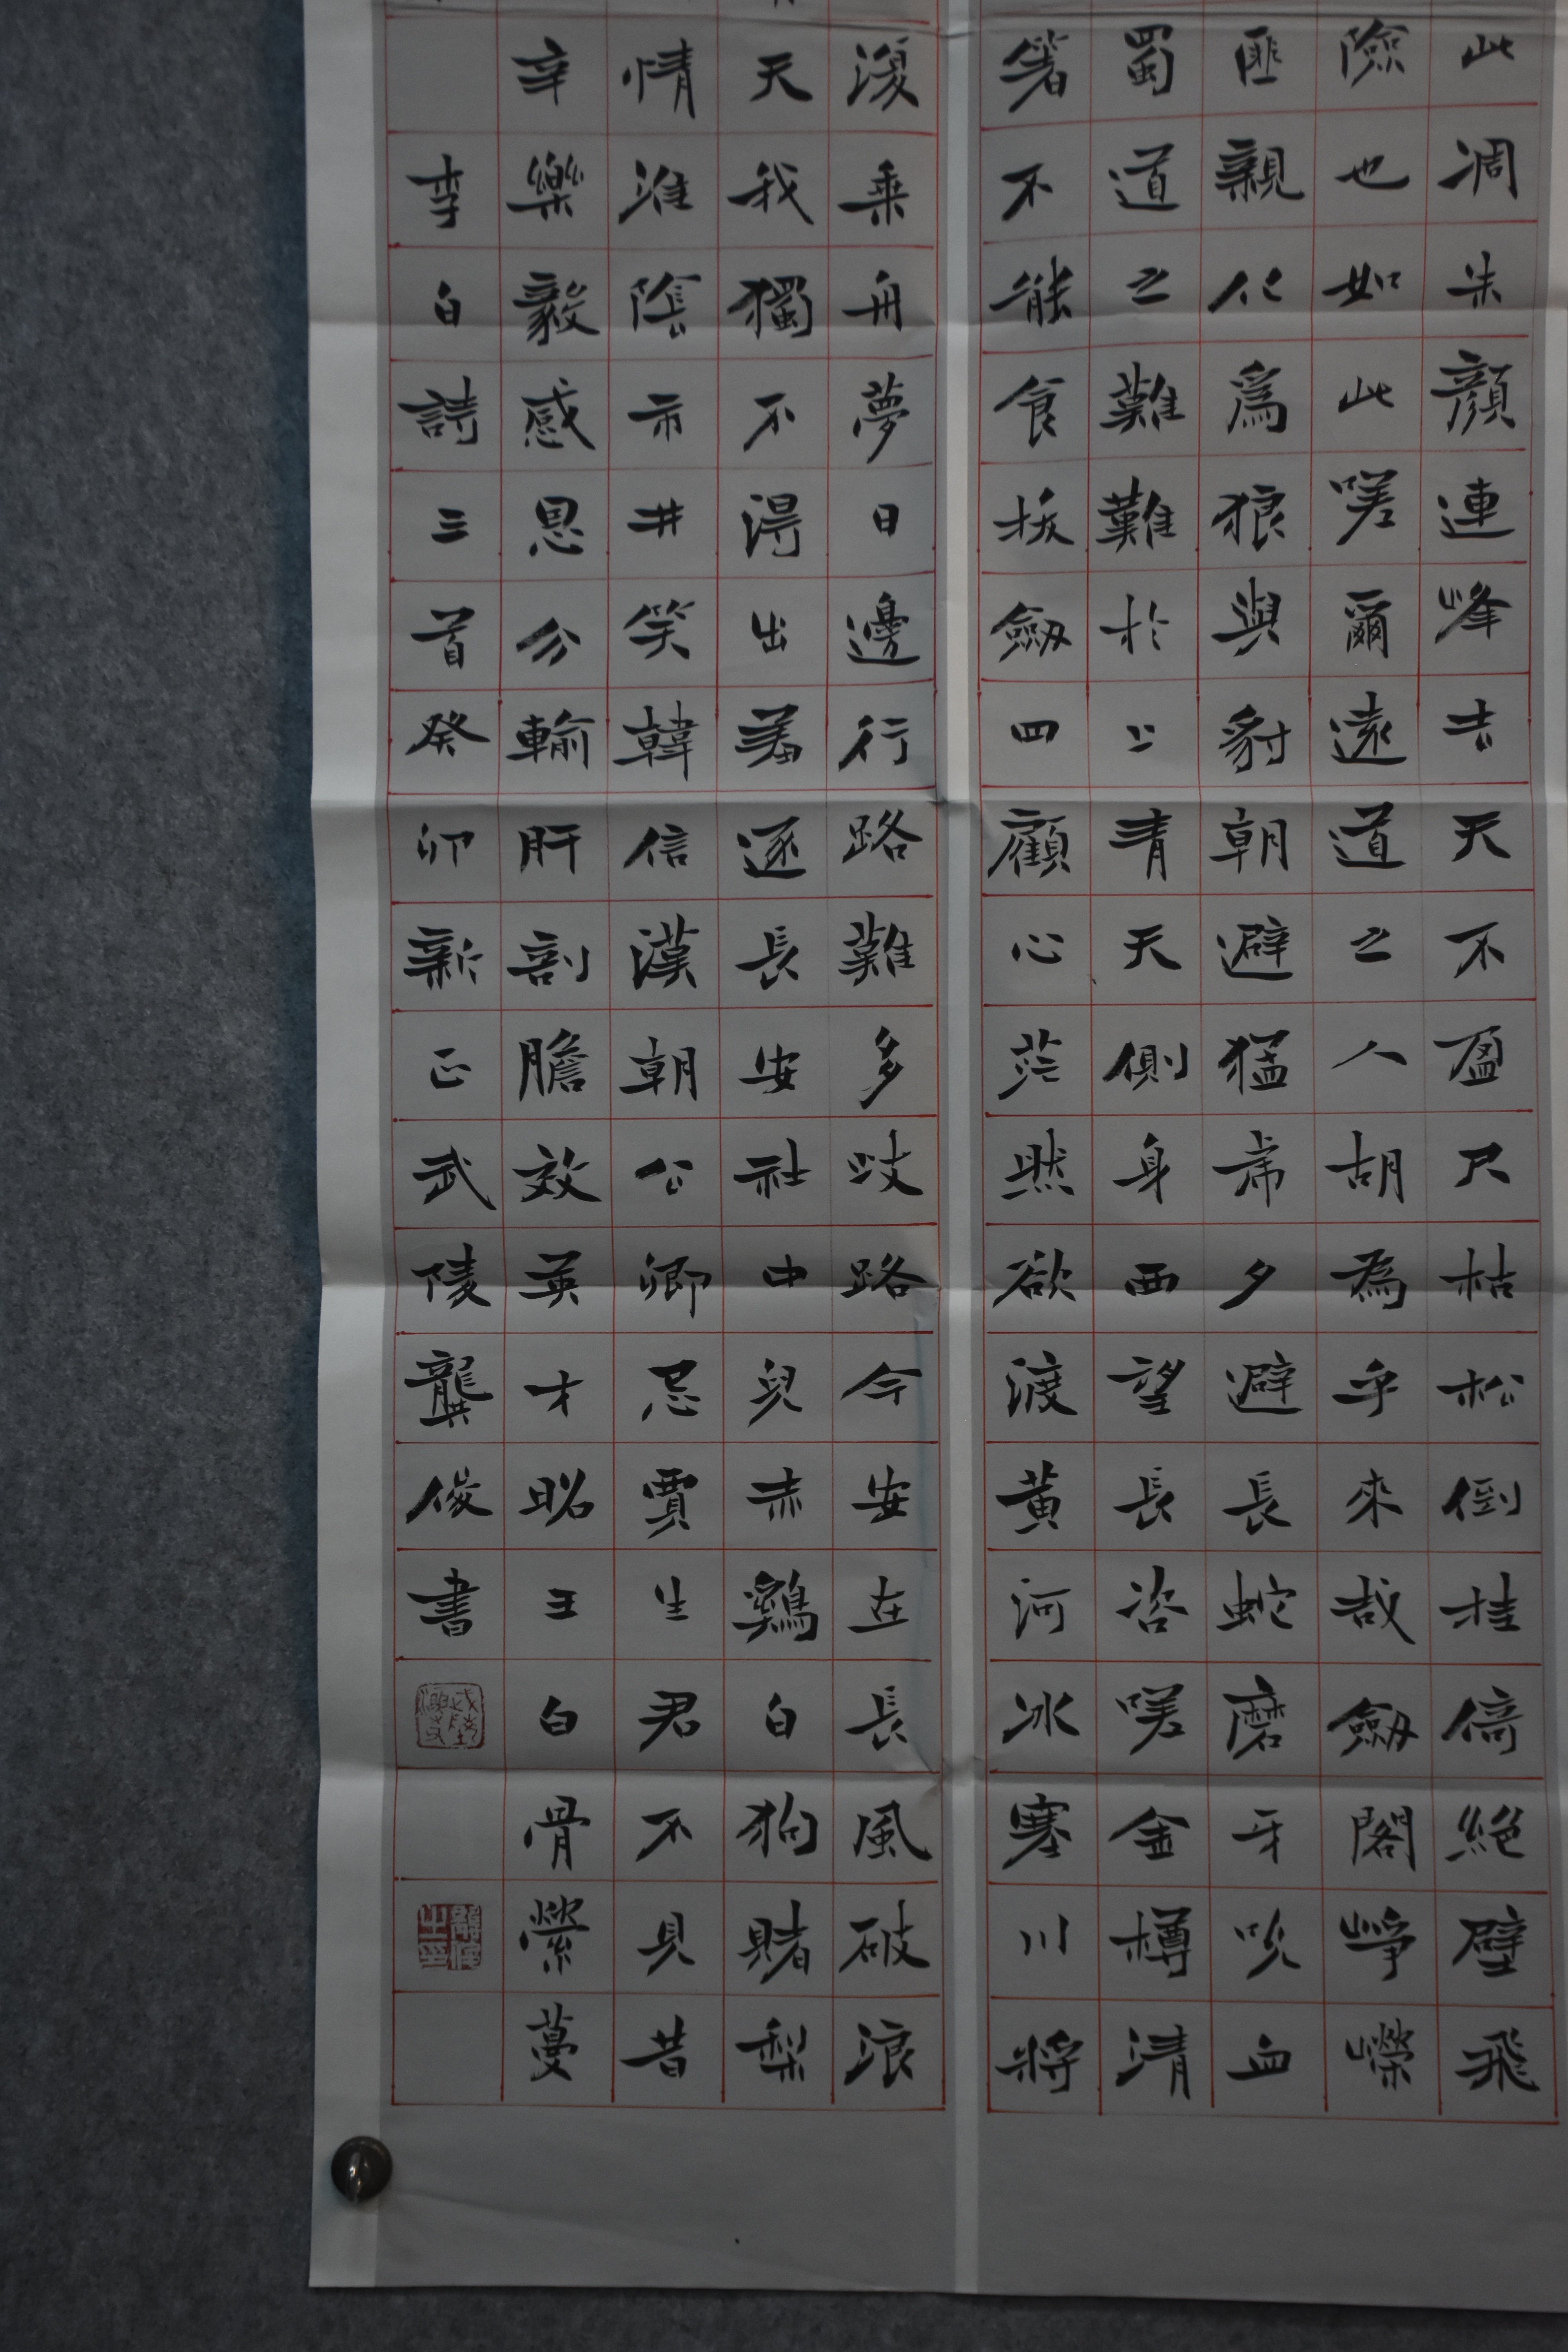 此凋朱顔連峰去天不盈尺枯松倒挂倚絶壁飛
險也如此嗟爾遠道之人胡為乎來哉劔閣崢嶸
匪親化爲狼與豺朝避猛虎夕避長蛇磨牙吮血
蜀道之難難於上青天側身西望長咨嗟金樽清
箸不能食拔劔四顧心茫然欲渡黃河冰塞川將
復乘舟夢日邊行路難多歧路今安在長風破浪
天我獨不得出羞逐長安社中兒赤鷄白狗賭梨
情淮陰市井笑韓信漢朝公卿忌賈生君不見昔
辛樂毅感恩分輸肝剖膽效英才昭王白骨縈蔓
李白詩三首癸卯新正武陵龔俊書